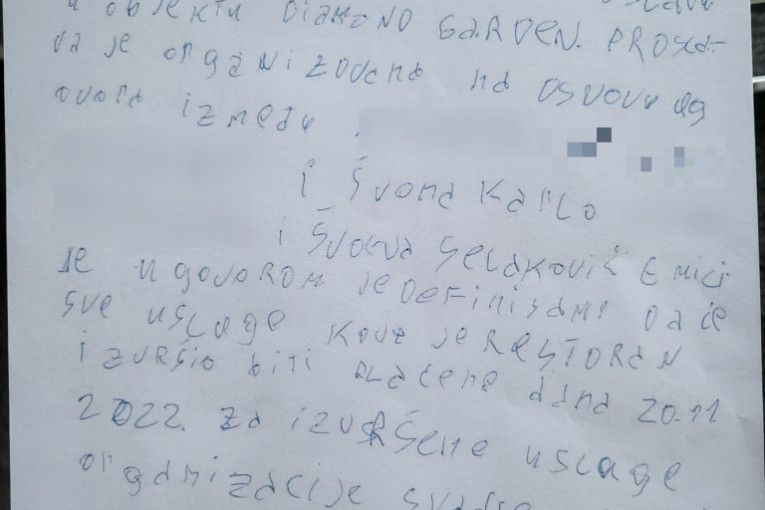 u objektu DIAMOND GARDEN. PROSLA-
va je organizovana na osnovu dog
ovora između
i Švona Karlo
i Švona Selaković Emici
je ugovorom je DEFINISANO da će
sve usluge koje je RESTORAN
izvršio biti plaćene dana 20.11
2022. za izvršene usluge
organizacije